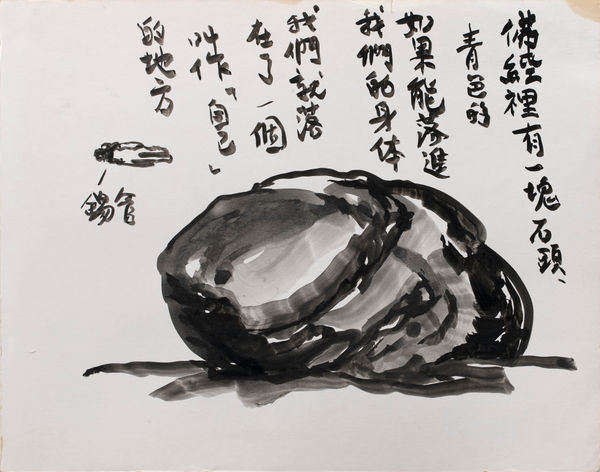 佛經裡有一塊石頭、
青色的
如果能落進
我們的身体
我們就落
在了一個
叫作「自己」
的地方
錫管